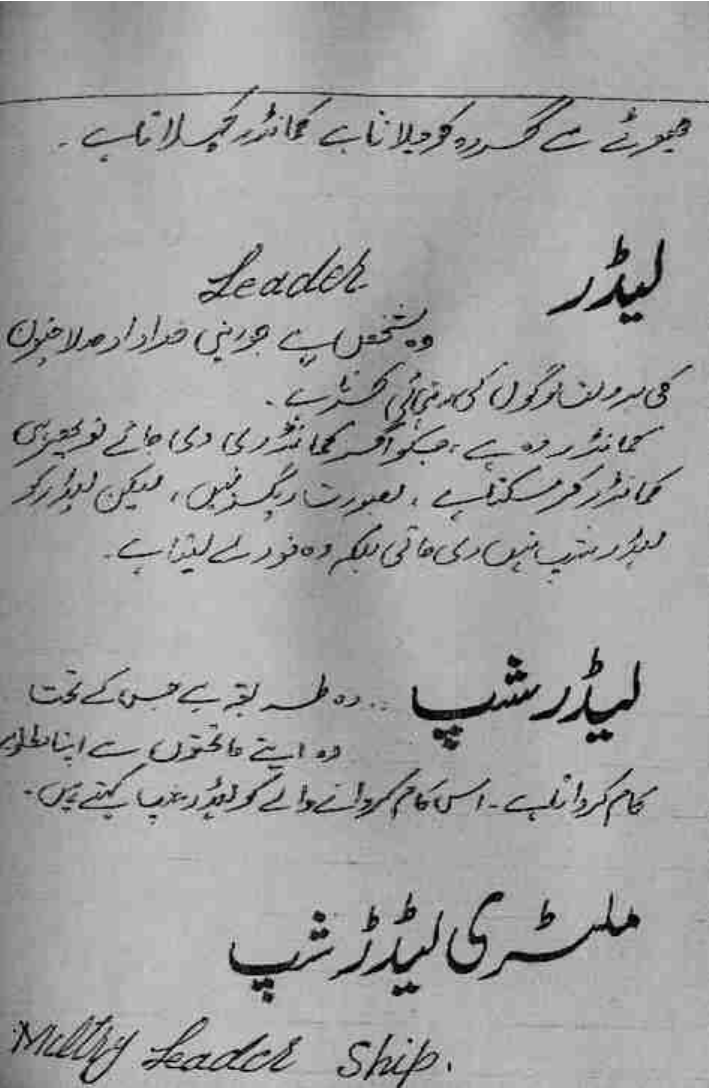 چھوٹے سے گروہ کو چلاتا ہے کمانڈر کہلاتا ہے ۔
لیڈر Leader
وہ شخص ہے جو اپنی خداداد صلاحیتوں
کی بدولت لوگوں کی رہنمائی کرتا ہے ۔
کمانڈر وہ ہے ، جسکو اگر کمانڈری دی جائے تو پھر ہی
کمانڈر کر سکتا ہے ، بصورت دیگر نہیں ، لیکن لیڈر کو
لیڈر شپ نہیں دی جاتی بلکہ وہ خود لے لیتا ہے ۔
لیڈر شپ .. وہ طریقہ ہے جس کے تحت
وہ اپنے ماتحتوں سے اپنا مطلوبہ
کام کرواتا ہے ۔ اس کام کروانے والے کو لیڈر شپ کہتے ہیں ۔
ملٹری لیڈڑ شپ
Miltry Leader Ship.